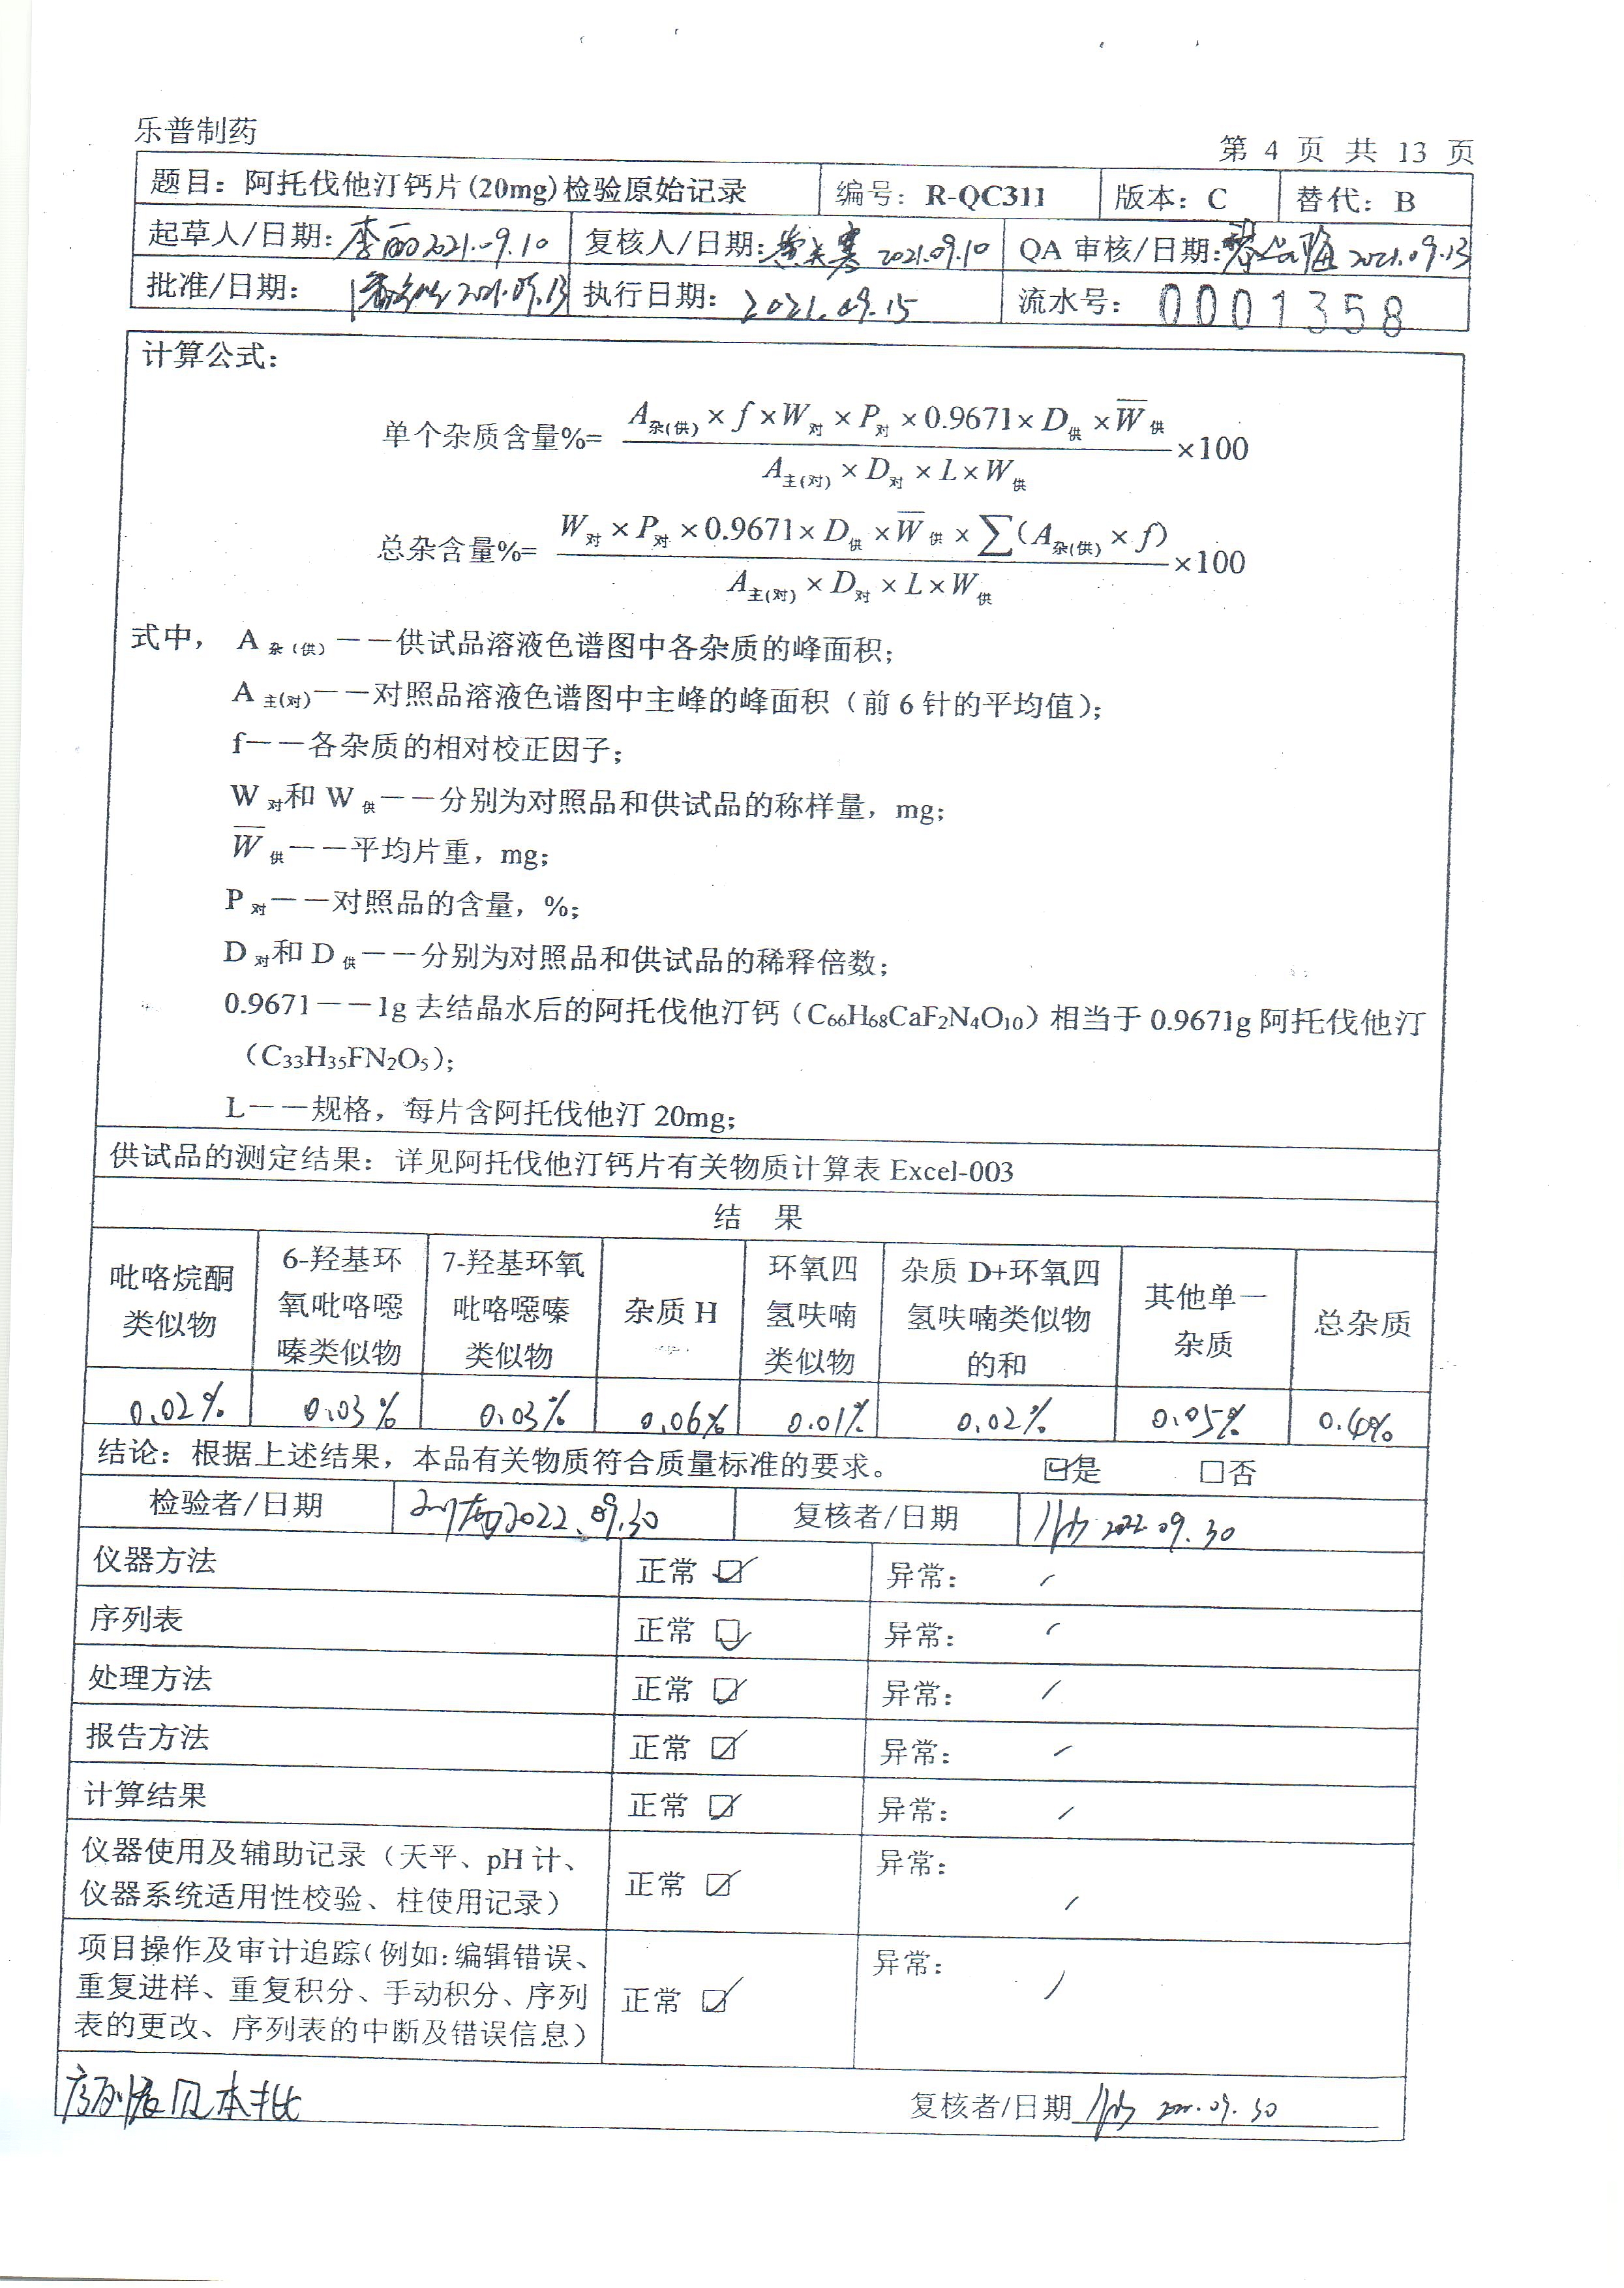 乐普制药
第 4 页 共 13 页
题目：阿托伐他汀钙片(20mg)检验原始记录 编号：R-QC311 版本：C 替代：B
起草人/日期：李丽2021.09.10 复核人/日期： 2021.09.10 QA 审核/日期： 2021.09.13
批准/日期： 2021.09.13 执行日期：2021.09.15 流水号：0001358
计算公式：
单个杂质含量%= A杂(供)×f×W对×P对×0.9671×D供×W̅供 / A主(对)×D对×L×W供 ×100
总杂含量%= W对×P对×0.9671×D供×W̅供×∑(A杂(供)×f) / A主(对)×D对×L×W供 ×100
式中，A杂（供）——供试品溶液色谱图中各杂质的峰面积；
A主(对)——对照品溶液色谱图中主峰的峰面积（前 6 针的平均值）；
f——各杂质的相对校正因子；
W对和 W供——分别为对照品和供试品的称样量，mg；
W̅供——平均片重，mg；
P对——对照品的含量，%；
D对和 D供——分别为对照品和供试品的稀释倍数；
0.9671——1g 去结晶水后的阿托伐他汀钙（C66H68CaF2N4O10）相当于 0.9671g 阿托伐他汀
（C33H35FN2O5）；
L——规格，每片含阿托伐他汀 20mg；
供试品的测定结果：详见阿托伐他汀钙片有关物质计算表 Excel-003
结 果
吡咯烷酮类似物 6-羟基环氧吡咯噁嗪类似物 7-羟基环氧吡咯噁嗪类似物 杂质 H 环氧四氢呋喃类似物 杂质 D+环氧四氢呋喃类似物的和 其他单一杂质 总杂质
0.02% 0.03% 0.03% 0.06% 0.01% 0.02% 0.05% 0.4%
结论：根据上述结果，本品有关物质符合质量标准的要求。 ☑是 □否
检验者/日期 2022.09.30 复核者/日期 2022.09.30
仪器方法 正常 ☑ 异常： /
序列表 正常 ☑ 异常： /
处理方法 正常 ☑ 异常： /
报告方法 正常 ☑ 异常： /
计算结果 正常 ☑ 异常： /
仪器使用及辅助记录（天平、pH 计、
仪器系统适用性校验、柱使用记录） 正常 ☑ 异常： /
项目操作及审计追踪（例如：编辑错误、
重复进样、重复积分、手动积分、序列
表的更改、序列表的中断及错误信息） 正常 ☑ 异常： /
见本批 复核者/日期 2022.09.30